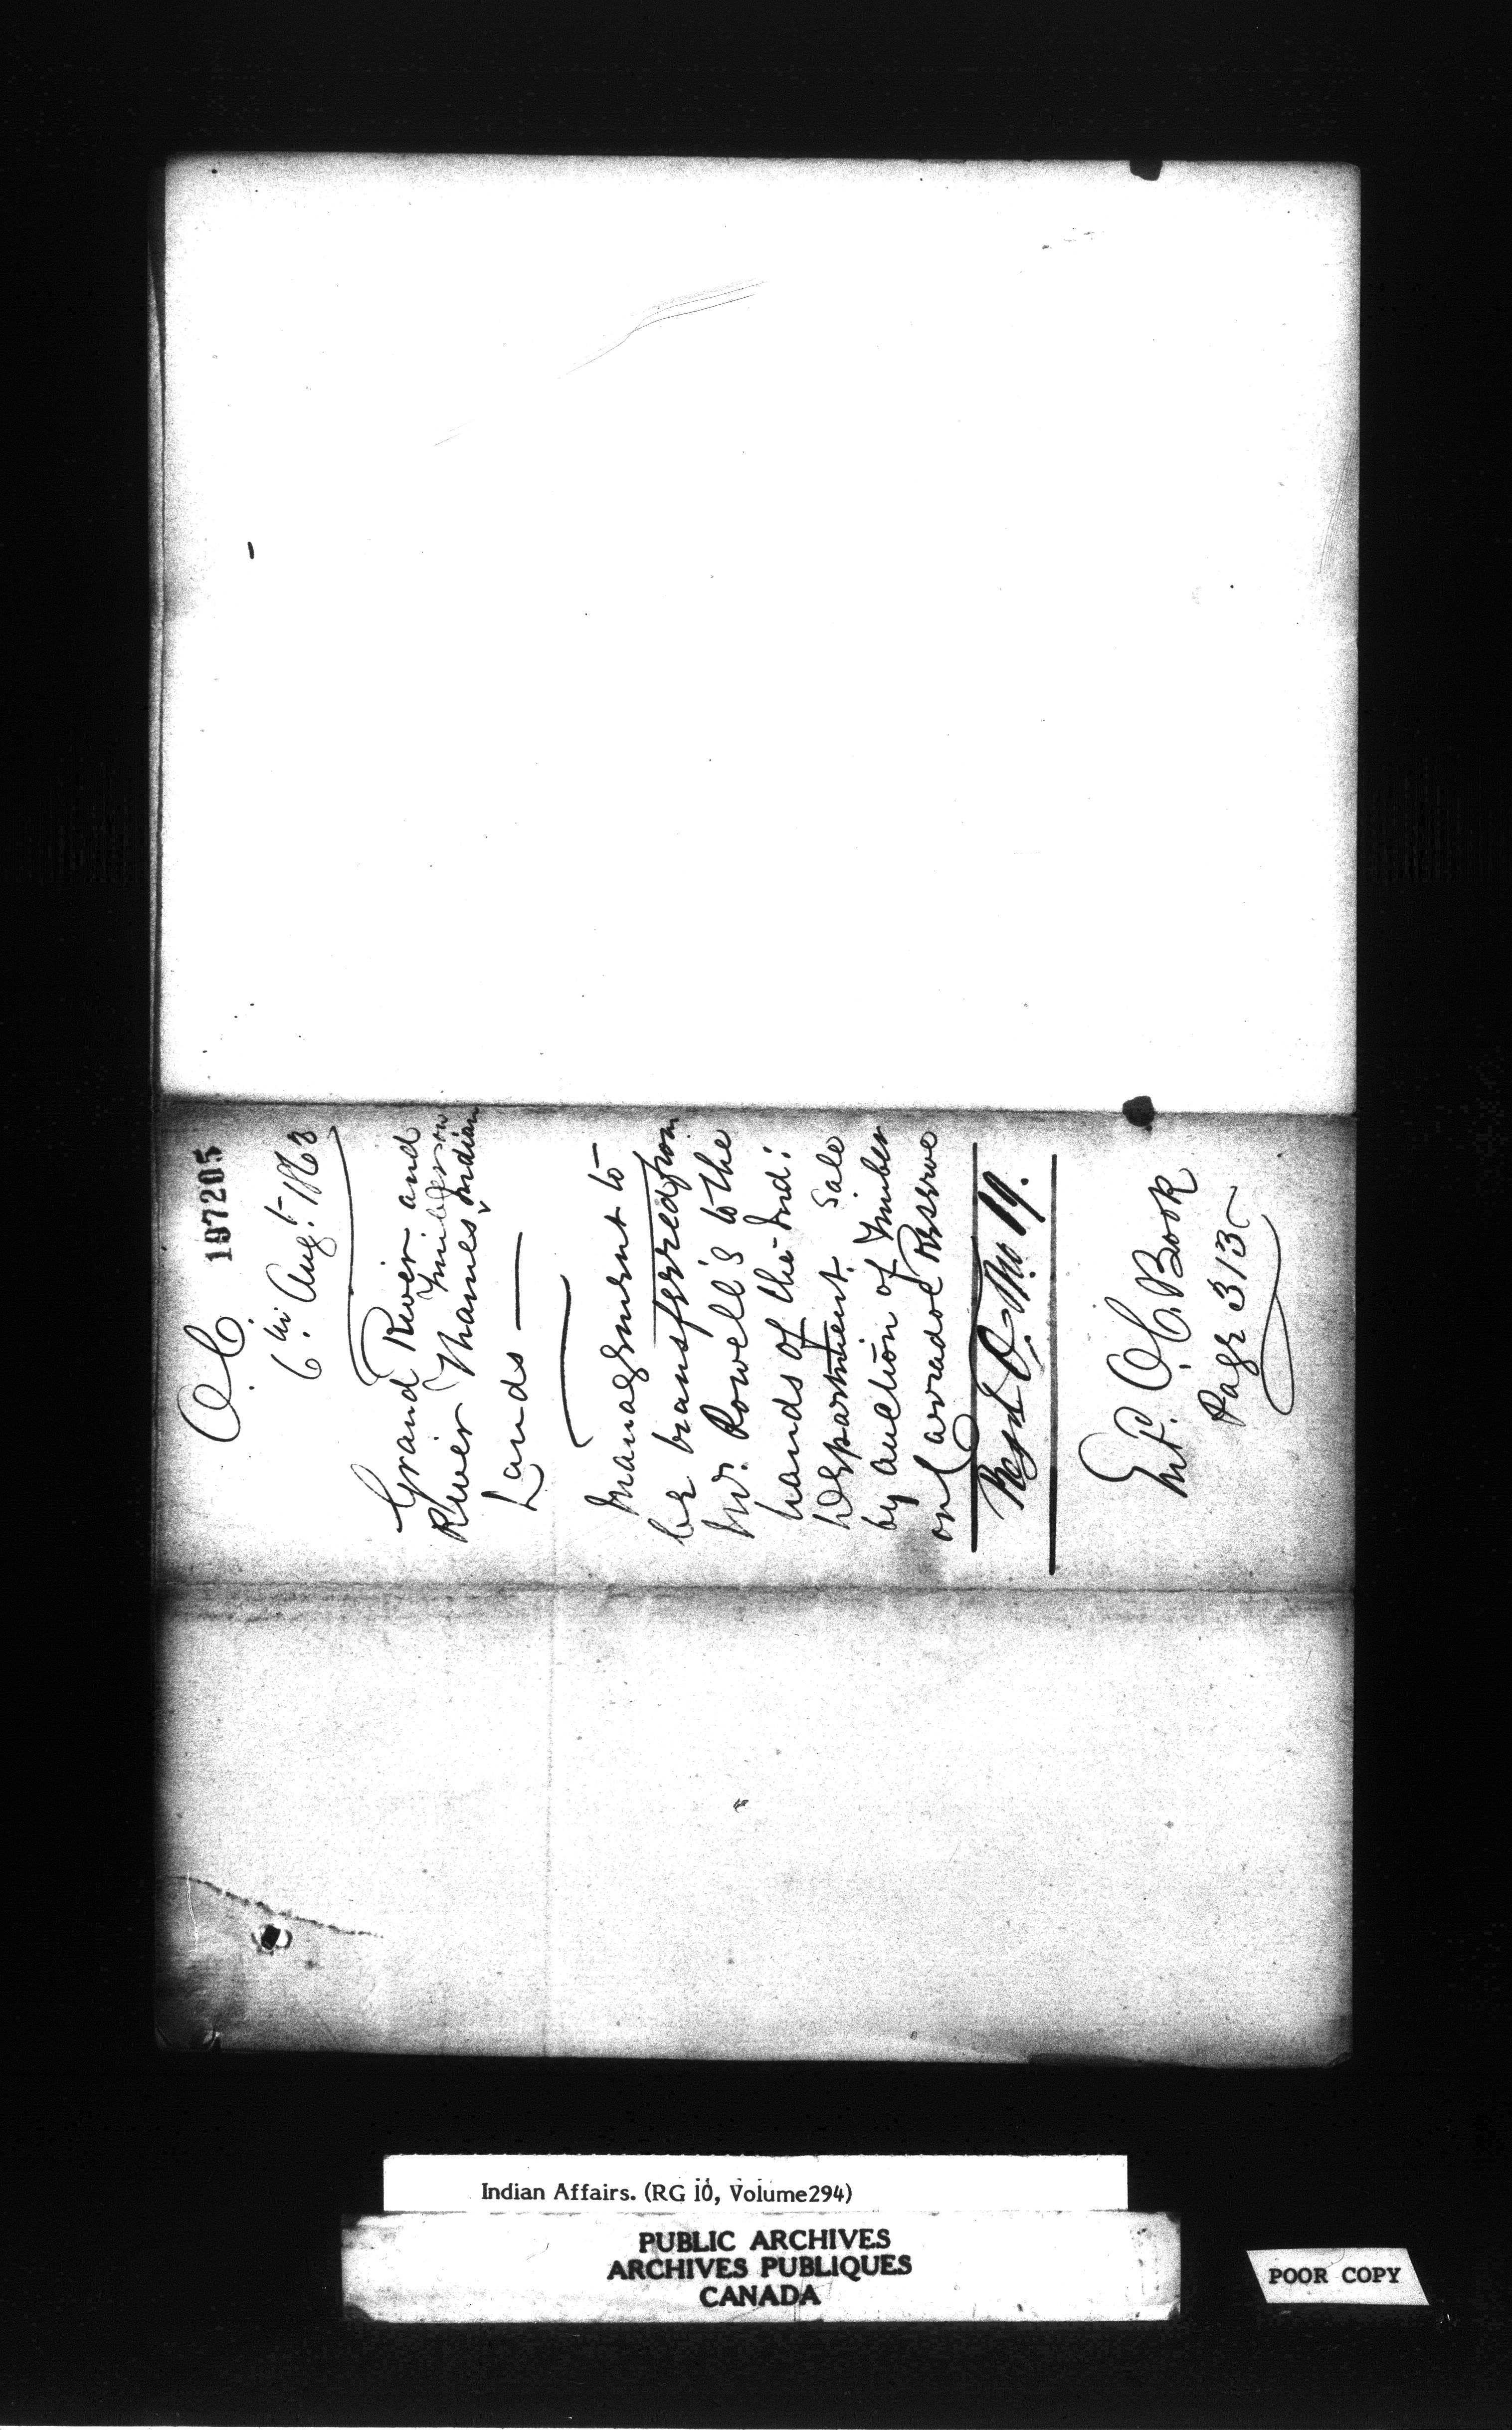 197205
O.C.
6th Augt 1863
Grand River and
Timber on
River Thames Indian
Lands
Management to
be transferred from
Mr. Rowell's to the
hands of the Ind:
Department. Sale
by auction of Timber
on Carradoc Reserve
Regd O. No 19.
Entd. O.C. Book
Page 313
Indian Affairs. (RG 10, Volume294)
PUBLIC ARCHIVES
ARCHIVES PUBLIQUES
CANADA
POOR COPY